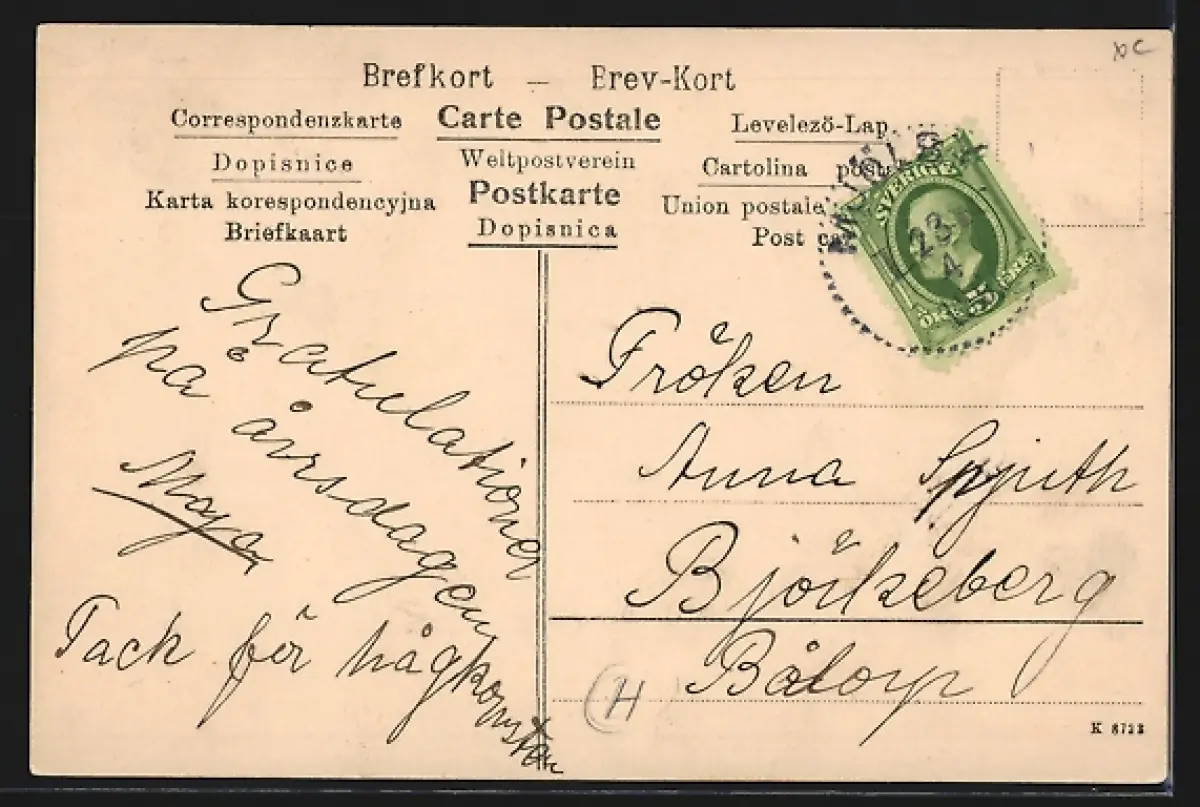 Brefkort — Brev-Kort
Correspondenzkarte Carte Postale Levelező-Lap
Dopisnice Weltpostverein Cartolina
Karta korespondencyjna Postkarte Union postale
Briefkaart Dopisnica Post
SVERIGE
23
4
5
ÖRE ÖRE
Gratulationer
på årsdagen
Maja
Tack för hågkomsten
Fröken
Anna Spjuth
Björkeberg
Båtorp
H
K 8723